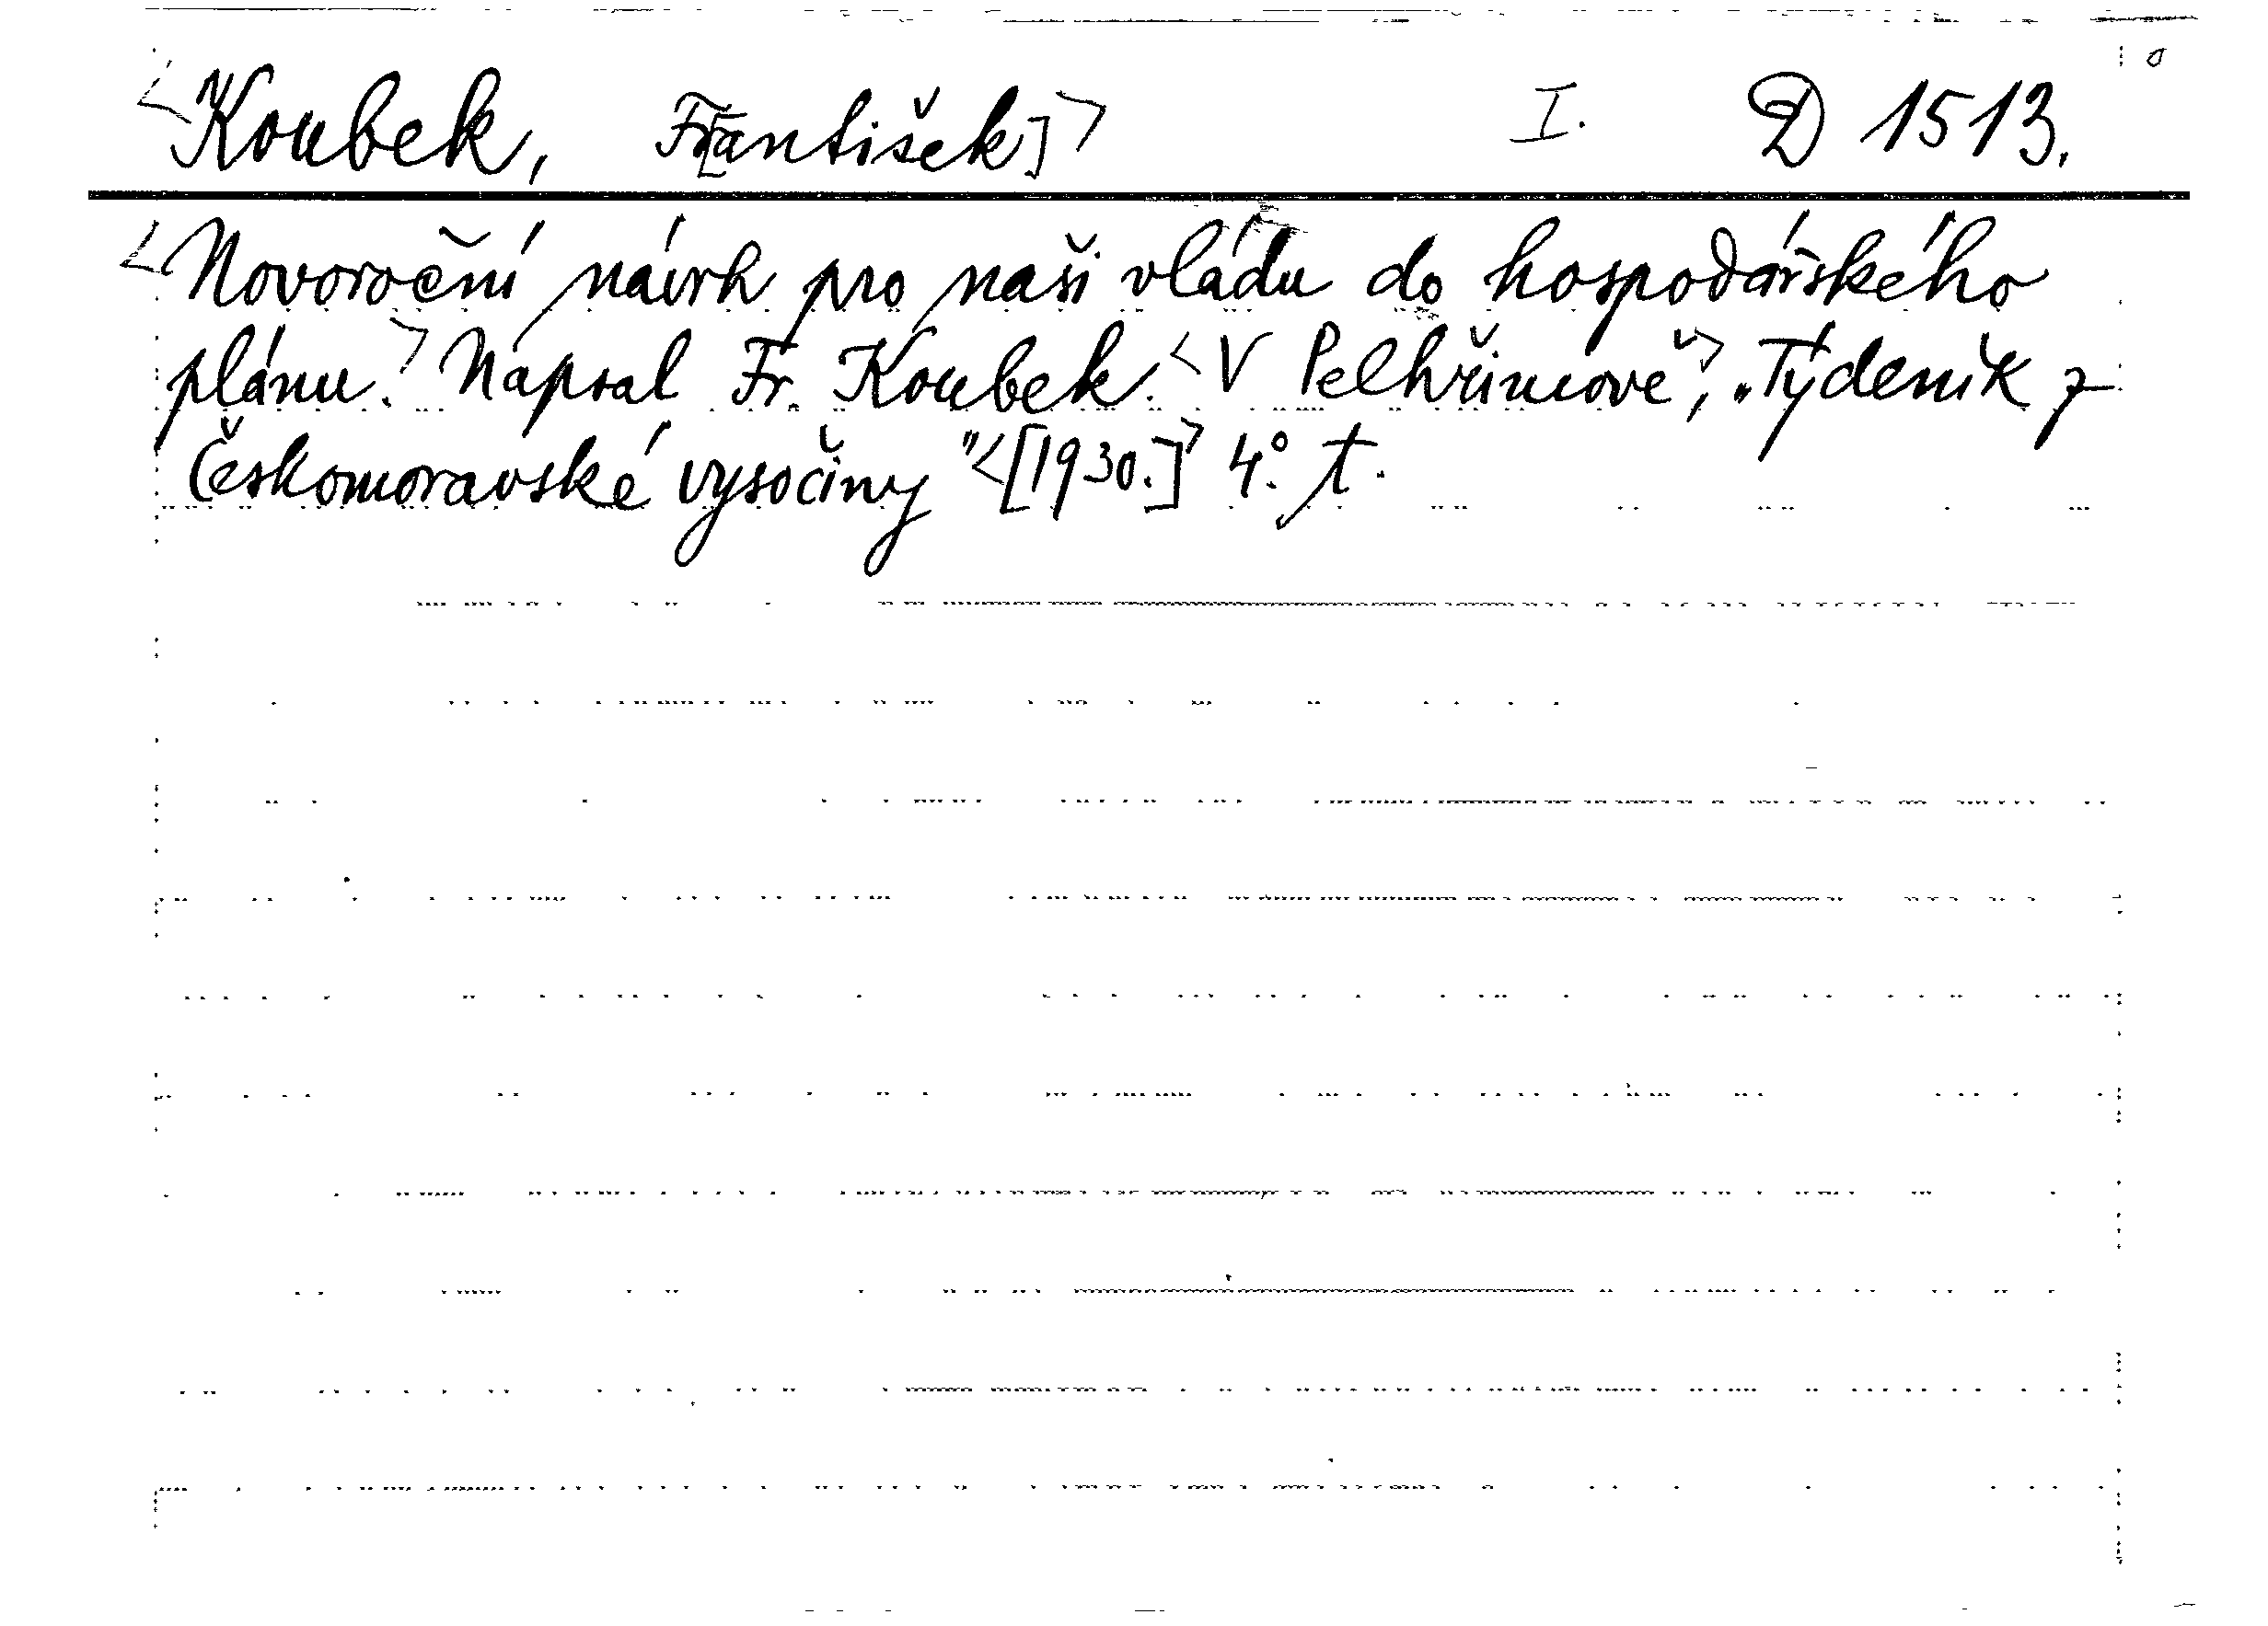 <Koubek, Fr[antišek]> I. D 1513.
<Novoroční návrh pro naši vládu do hospodářského
plánu.> Napsal Fr. Koubek. <V Pelhřimově>, „Týdeník z
Českomoravské vysočiny" <[1930.]> 4°. t.